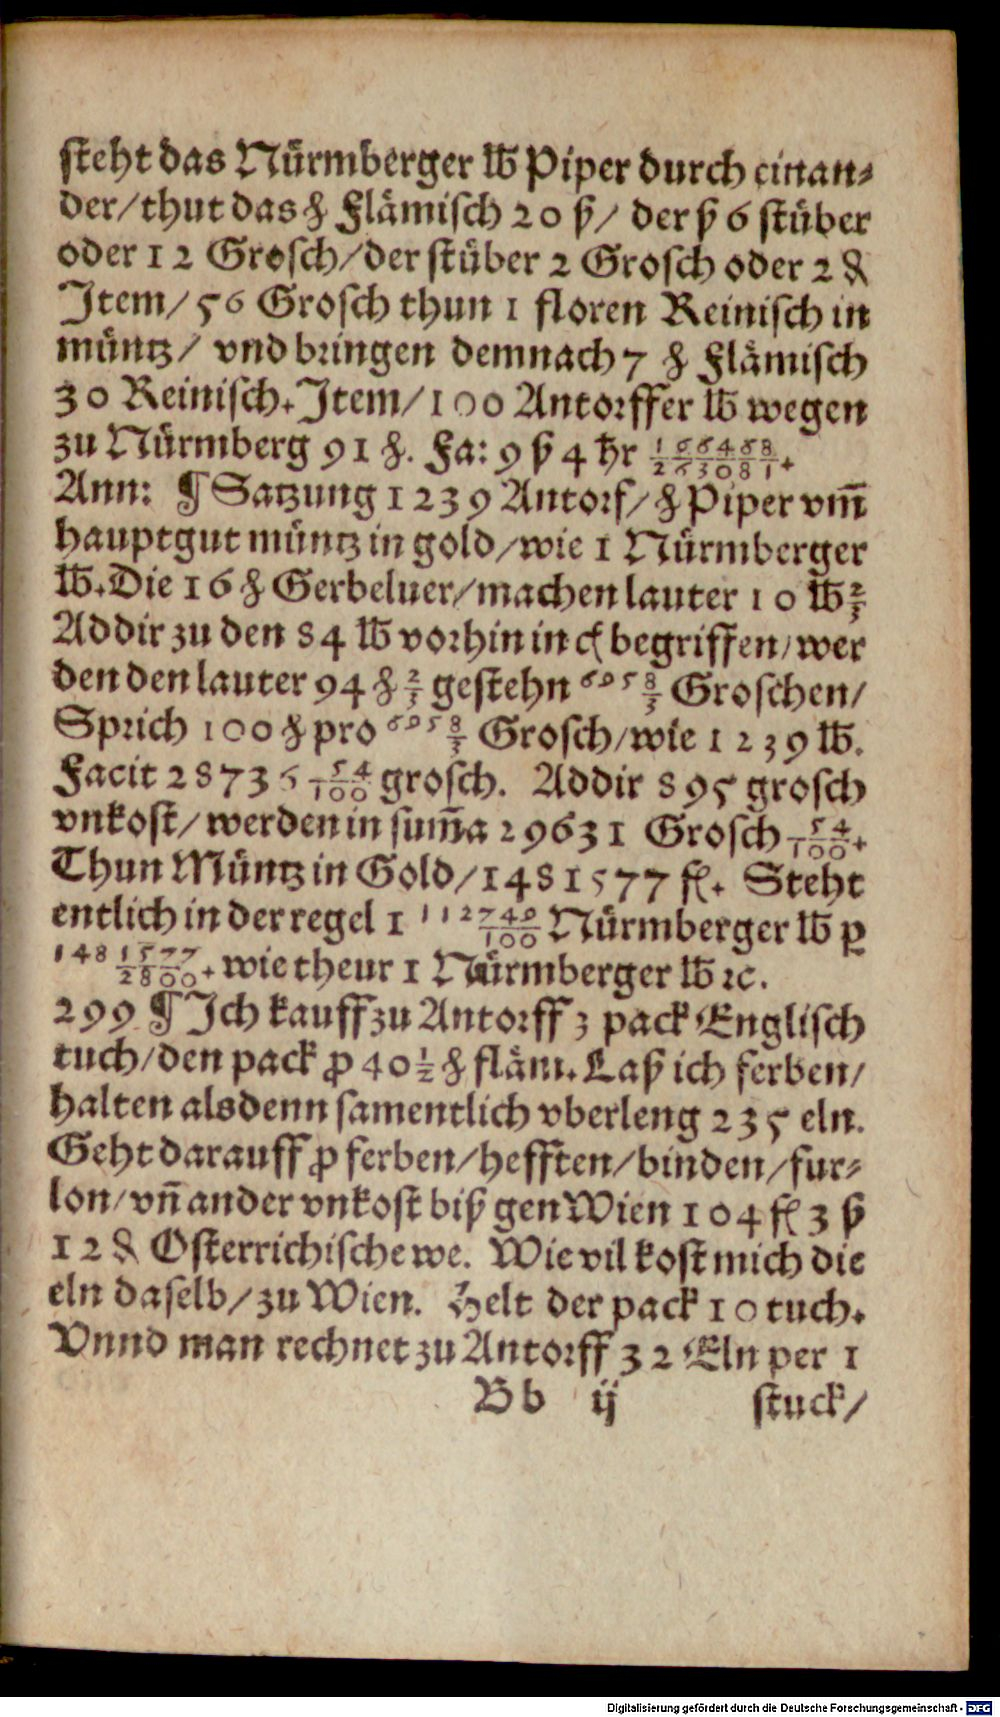 steht das Nürmberger ℔ Piper durch einan⸗
der/ thut das ℔ Flämisch 20 ß/ der ß 6 stüber
oder 12 Grosch/ der stüber 2 Grosch oder 2 ₰
Item/ 56 Grosch thun 1 floren Reinisch in
müntz/ vnd bringen demnach 7 ℔ Flämisch
30 Reinisch. Item/ 100 Antorffer ℔ wegen
zu Nürmberg 91 ℔. Fa: 9 ß 4 hr 1566458/263081.
Ann: ¶ Satzung 1239 Antorf/ ℔ Piper vm̃
hauptgut müntz in gold/ wie 1 Nürmberger
℔. Die 16 ℔ Gerbeluer/ machen lauter 10 ℔ 2/3
Addir zu den 84 ℔ vorhin in begriffen/ wer
den den lauter 94 ℔ 2/3 gestehn 6958/3 Groschen/
Sprich 100 ℔ pro 6958/3 Grosch/ wie 1239 ℔.
Facit 28736 54/100 grosch. Addir 895 grosch
vnkost/ werden in sum̃a 29631 Grosch 54/100.
Thun Müntz in Gold/ 1481577 fl. Steht
entlich in der regel 1 112740/100 Nürmberger ℔ ꝑ
148 1577/2800. wie theur 1 Nürmberger ℔ ꝛc.
299 ¶ Ich kauff zu Antorff 3 pack Englisch
tuch/ den pack ꝓ 40 1/2 ℔ fläm. Laß ich ferben/
halten alsdenn samentlich vberleng 235 eln.
Geht darauff ꝓ ferben/ hefften/ binden/ fur⸗
lon/ vñ ander vnkost biß gen Wien 104 fl 3 ß
12 ₰ Osterrichische we. Wie vil kost mich die
eln daselb/ zu Wien. Helt der pack 10 tuch.
Vnnd man rechnet zu Antorff 32 Eln per 1
Bb ij stuck/
Digitalisierung gefördert durch die Deutsche Forschungsgemeinschaft - DFG